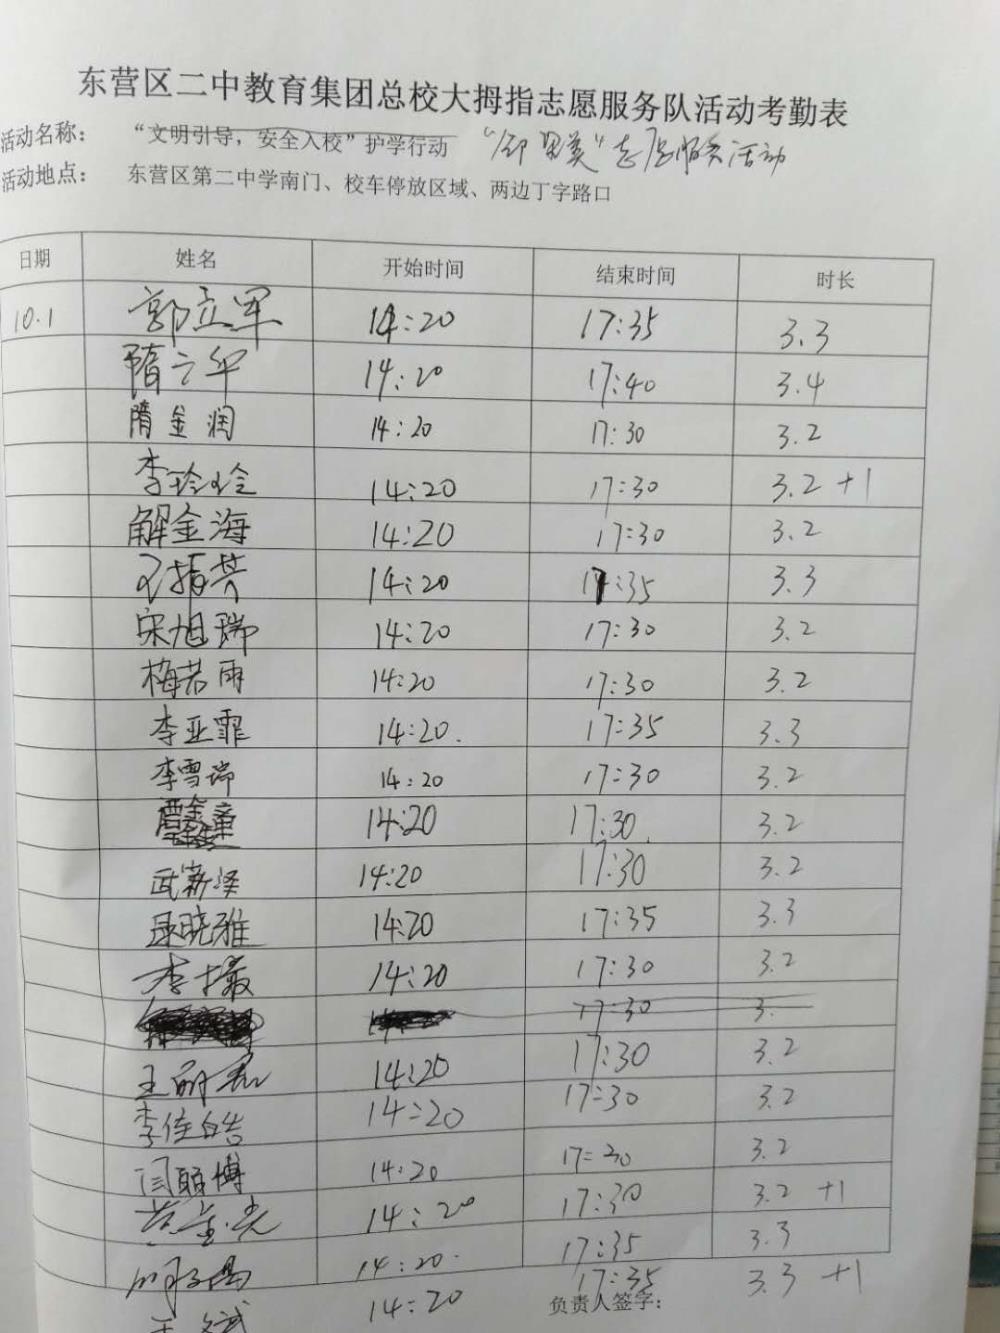 东营区二中教育集团总校大拇指志愿服务队活动考勤表
活动名称: “文明引导，安全入校”护学行动 “ 思美”志愿服务活动
活动地点: 东营区第二中学南门、校车停放区域、两边丁字路口
日期 姓名 开始时间 结束时间 时长
10.1 郭立军 14:20 17:35 3.3
隋云华 14:20 17:40 3.4
隋金润 14:20 17:30 3.2
李玲玲 14:20 17:30 3.2 +1
解金海 14:20 17:30 3.2
振芳 14:20 17:35 3.3
宋旭瑞 14:20 17:30 3.2
梅若雨 14:20 17:30 3.2
李亚霏 14:20. 17:35 3.3
李雪瑞 14:20 17:30 3.2
14:20 17:30. 3.2
武新泽 14:20 17:30 3.2
晓雅 14:20 17:35 3.3
李 14:20 17:30 3.2
17:30 3.
王丽 14:20 17:30 3.2
李佳皓 14:20 17:30 3.2
闫硕博 14:20 17:30 3.2
黄金光 14:20 17:30 3.2 +1
14:20. 17:35 3.3
14:20 17:35 3.3 +1
负责人签字: